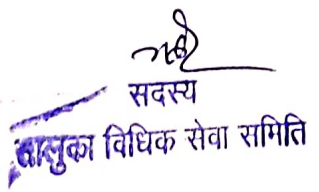 सदस्य
तालुका विधिक सेवा समिति